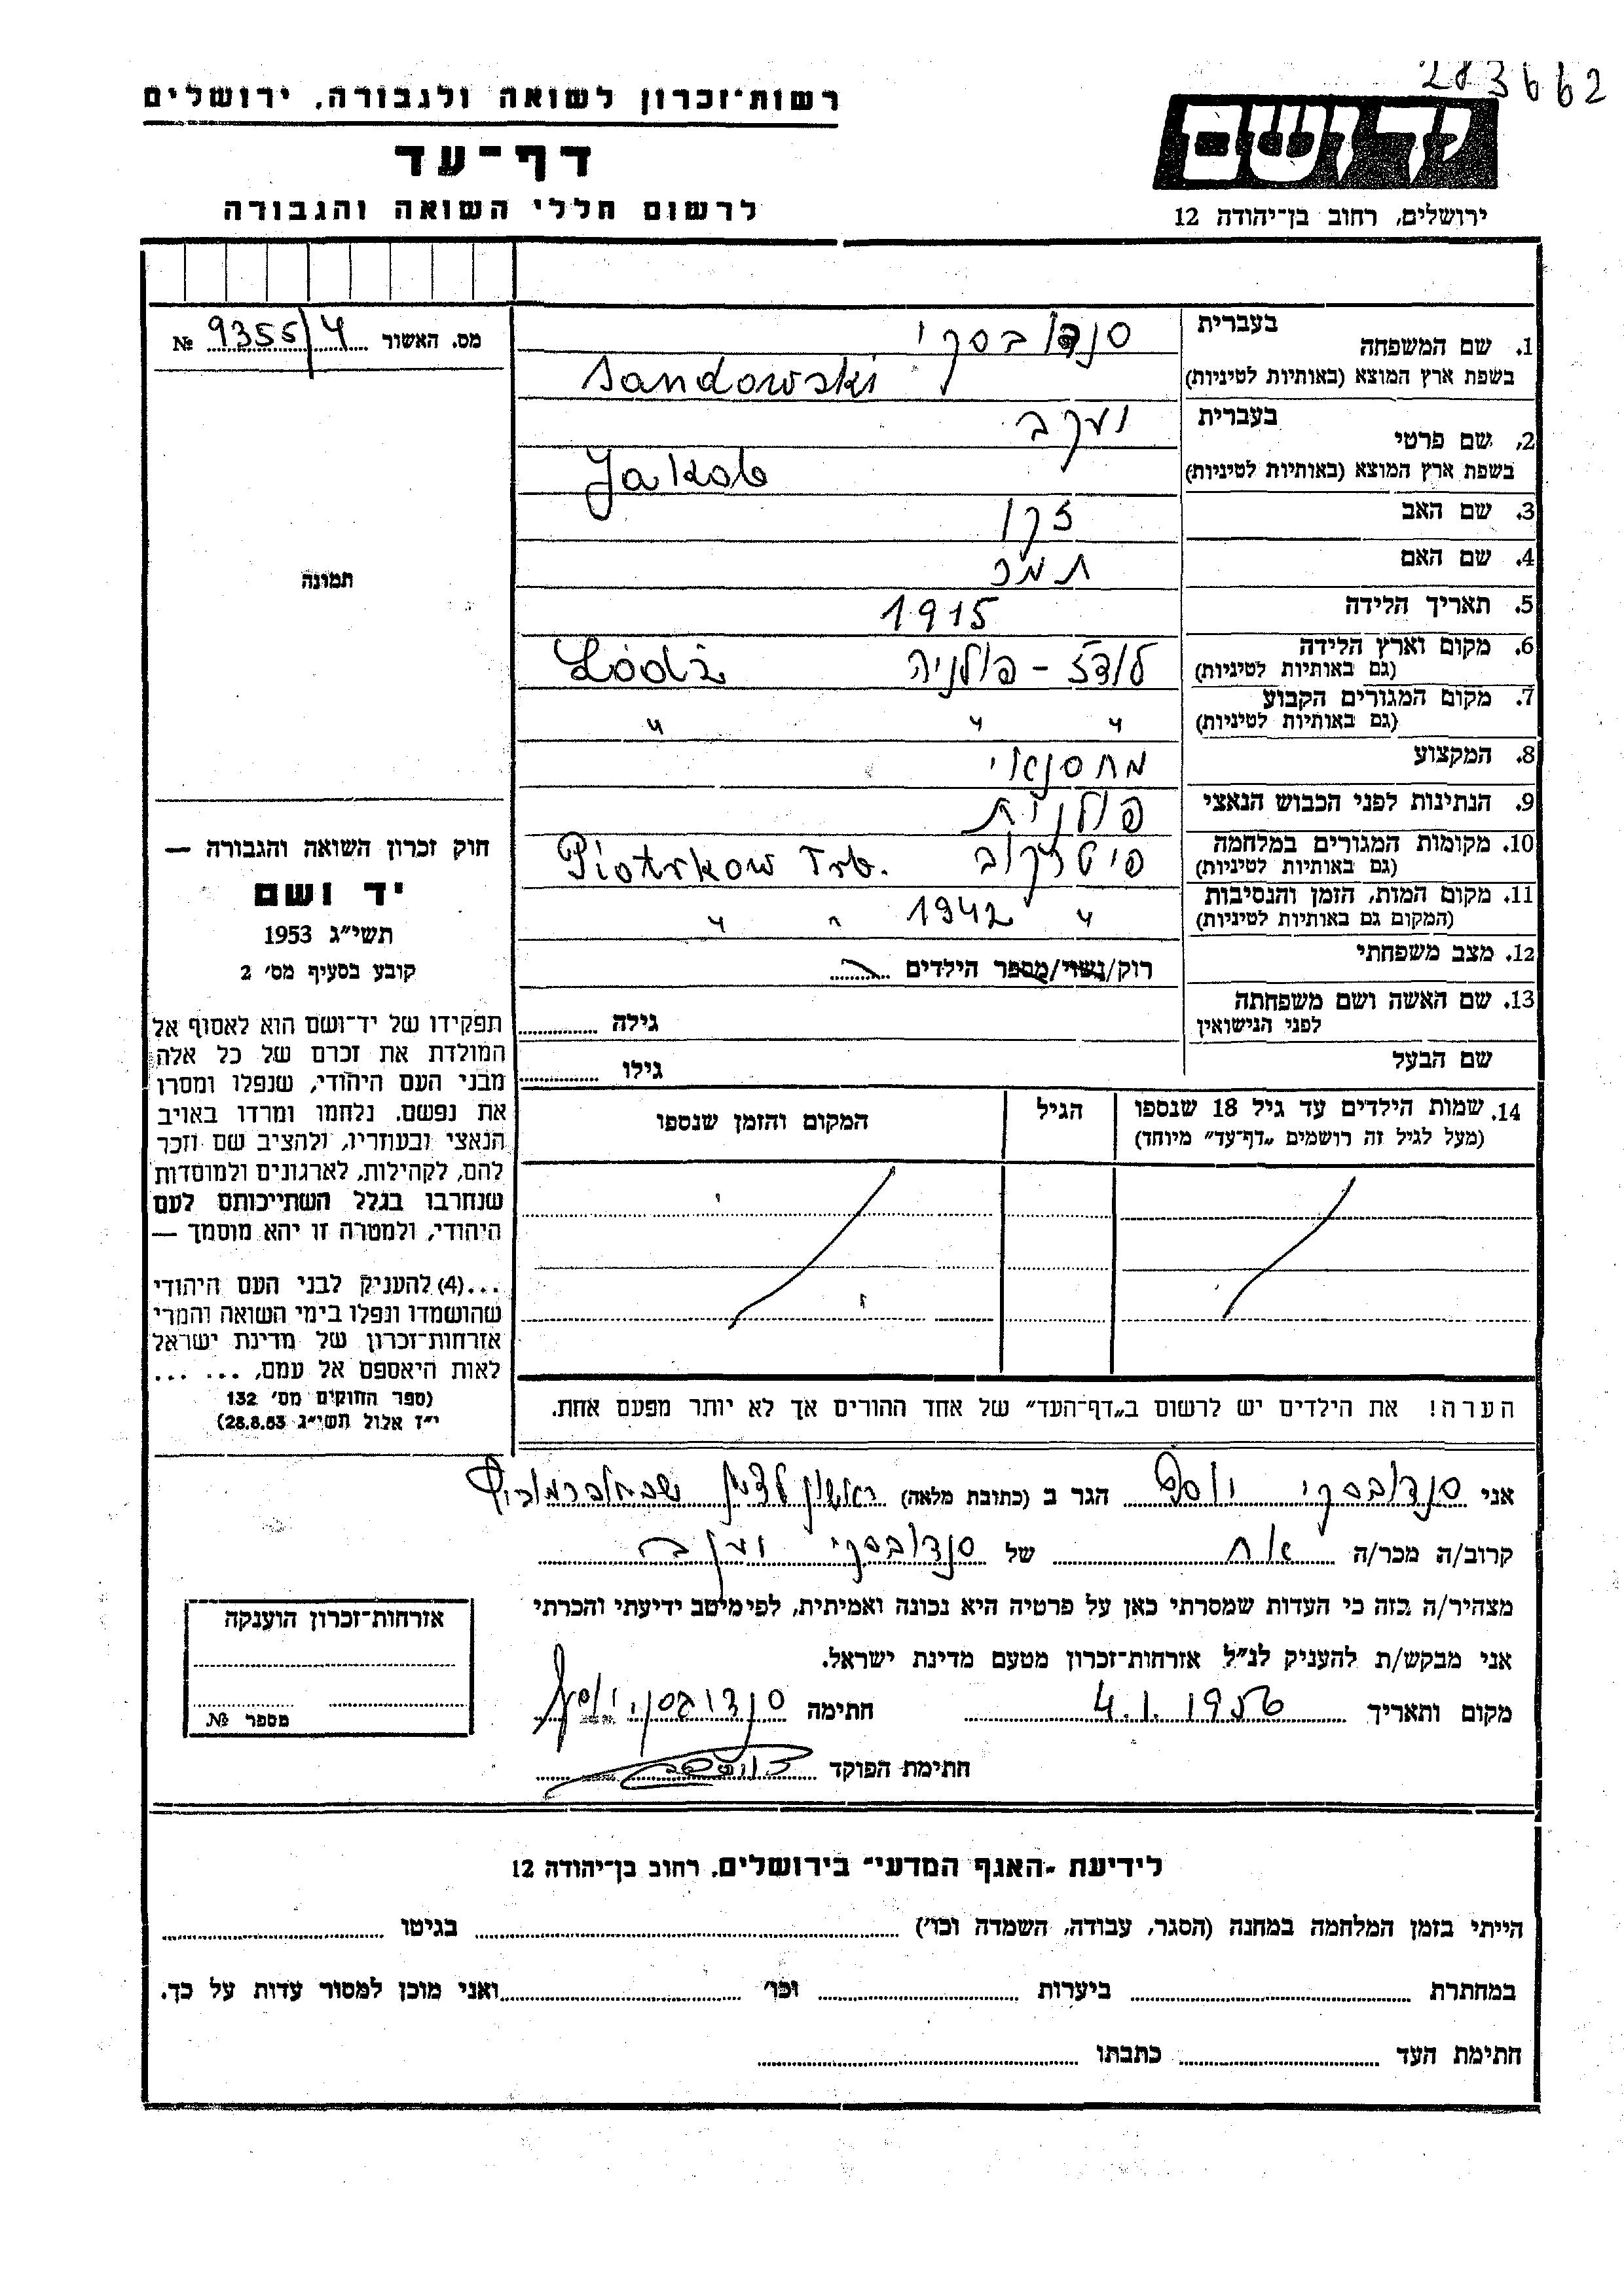 283662
רשות־זכרון לשואה ולגבורה, ירושלים
דף־עד
לרשום חללי השואה והגבורה
יד ושם
ירושלים, רחוב בן־יהודה 12
1. שם המשפחה בעברית סנדובסקי
בשפת ארץ המוצא (באותיות לטיניות) Sandowski
2. שם פרטי בעברית יעקב
בשפת ארץ המוצא (באותיות לטיניות) Jakob
3. שם האב
4. שם האם תמר
5. תאריך הלידה 1915
6. מקום וארץ הלידה לודז - פולניה Łódź
(גם באותיות לטיניות)
7. מקום המגורים הקבוע " " "
(גם באותיות לטיניות)
8. המקצוע מחסנאי
9. הנתינות לפני הכבוש הנאצי פולנית
10. מקומות המגורים במלחמה פיטרקוב Piotrkow Trb.
(גם באותיות לטיניות)
11. מקום המות, הזמן והנסיבות " 1942 " "
(המקום גם באותיות לטיניות)
12. מצב משפחתי רוק/נשוי/מספר הילדים
13. שם האשה ושם משפחתה
לפני הנישואין גילה
שם הבעל גילו
14. שמות הילדים עד גיל 18 שנספו הגיל המקום והזמן שנספו
(מעל לגיל זה רושמים „דף־עד” מיוחד)
הערה! את הילדים יש לרשום ב„דף־העד” של אחד ההורים אך לא יותר מפעם אחת.
מס. האשור 9355/4 №
תמונה
חוק זכרון השואה והגבורה —
יד ושם
תשי״ג 1953
קובע בסעיף מס׳ 2
תפקידו של יד־ושם הוא לאסוף אל
המולדת את זכרם של כל אלה
מבני העם היהודי, שנפלו ומסרו
את נפשם. נלחמו ומרדו באויב
הנאצי ובעוזריו, ולהציב שם וזכר
להם, לקהילות, לארגונים ולמוסדות
שנחרבו בגלל השתייכותם לעם
היהודי, ולמטרה זו יהא מוסמך —
...(4) להעניק לבני העם היהודי
שהושמדו ונפלו בימי השואה והמרי
אזרחות־זכרון של מדינת ישראל
לאות היאספם אל עמם, ... ...
(ספר החוקים מס׳ 132
י״ז אלול תשי״ג 28.8.53)
אני סנדובסקי יוסף הגר ב (כתובת מלאה) ראשון לציון
קרוב/ה מכר/ה אח של סנדובסקי יעקב
מצהיר/ה בזה כי העדות שמסרתי כאן על פרטיה היא נכונה ואמיתית, לפי מיטב ידיעתי והכרתי
אני מבקש/ת להעניק לנ״ל אזרחות־זכרון מטעם מדינת ישראל.
מקום ותאריך 4.1.1956 חתימה סנדובסקי יוסף
חתימת הפוקד
אזרחות־זכרון הוענקה
מספר №
לידיעת ״האגף המדעי״ בירושלים, רחוב בן־יהודה 12
הייתי בזמן המלחמה במחנה (הסגר, עבודה, השמדה וכו׳) בגיטו
במחתרת ביערות וכו׳ ואני מוכן למסור עדות על כך.
חתימת העד כתבתו